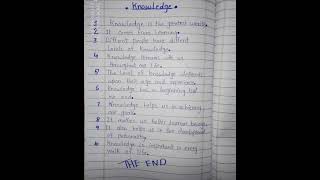 • Knowledge •
1 Knowledge is the greatest wealth.
2 It comes from learning.
3 Different people have different
levels of knowledge.
4 Knowledge remains with us
throughout our life.
5 The level of knowledge depends
upon their age and experience.
6 Knowledge has a beginning but
no end.
7 Knowledge helps us in achieving
our goals.
8 It makes us better human beings.
9 It also helps us in the development
of personality.
10 Knowledge is important in every
walk of life.
THE END